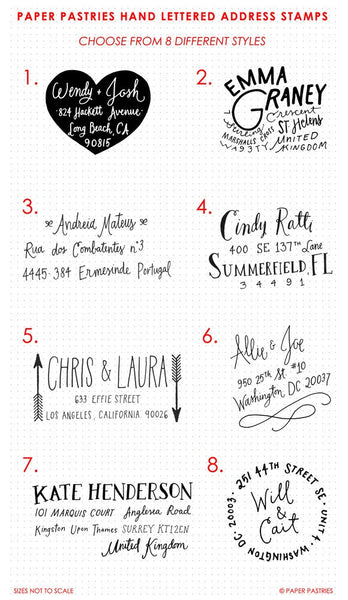 PAPER PASTRIES HAND LETTERED ADDRESS STAMPS
CHOOSE FROM 8 DIFFERENT STYLES
1.
Wendy + Josh
824 Hackett Avenue
Long Beach, CA
90815
2.
EMMA
GRANEY
7 Sterling Crescent
MARSHALLS CROSS ST Helens
WA9 3TY UNITED
KINGDOM
3.
Andreia Mateus
Rua dos Combatentes nº3
4445-384 Ermesinde Portugal
4.
Cindy Ratti
400 SE 137th Lane
SUMMERFIELD, FL
34491
5.
CHRIS & LAURA
633 EFFIE STREET
LOS ANGELES, CALIFORNIA 90026
6.
Allie & Joe
950 25th St #10
Washington DC 20037
7.
KATE HENDERSON
101 MARQUIS COURT Anglesea Road
Kingston Upon Thames SURREY KT12EN
United Kingdom
8.
251 44TH STREET SE · UNIT 4 · WASHINGTON DC 20003 ·
Will
&
Cait
SIZES NOT TO SCALE
© PAPER PASTRIES